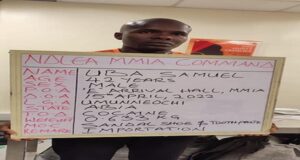 NDLEA MMIA COMMAND
NAME UBA SAMUEL
AGE 42 YEARS
SEX MALE
P.O.A ARRIVAL HALL, MMIA
D.O.A 15TH APRIL, 2022
L.G.A UMUNNEOCHI
STATE ABIA
D.T
WEIGHT KG
SHOE & TOOTHPASTE
REMARK IMPORTATION